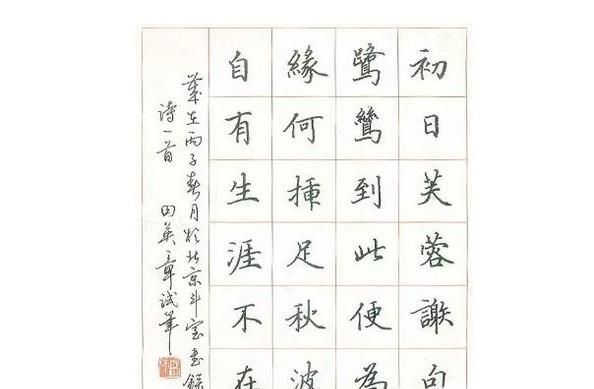 初日芙蓉謝
鷺鷥到此便為
緣何揷足秋波
自有生涯不在
歲在丙子春月於北京斗室書錄
诗一首 田英章試筆